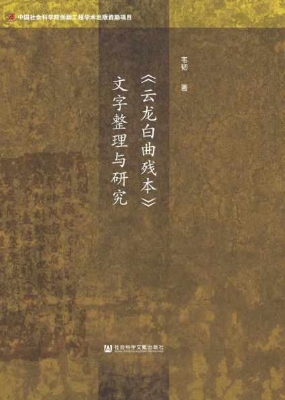 中国社会科学院创新工程学术出版资助项目
《云龙白曲残本》
文字整理与研究
韦韧 著
社会科学文献出版社